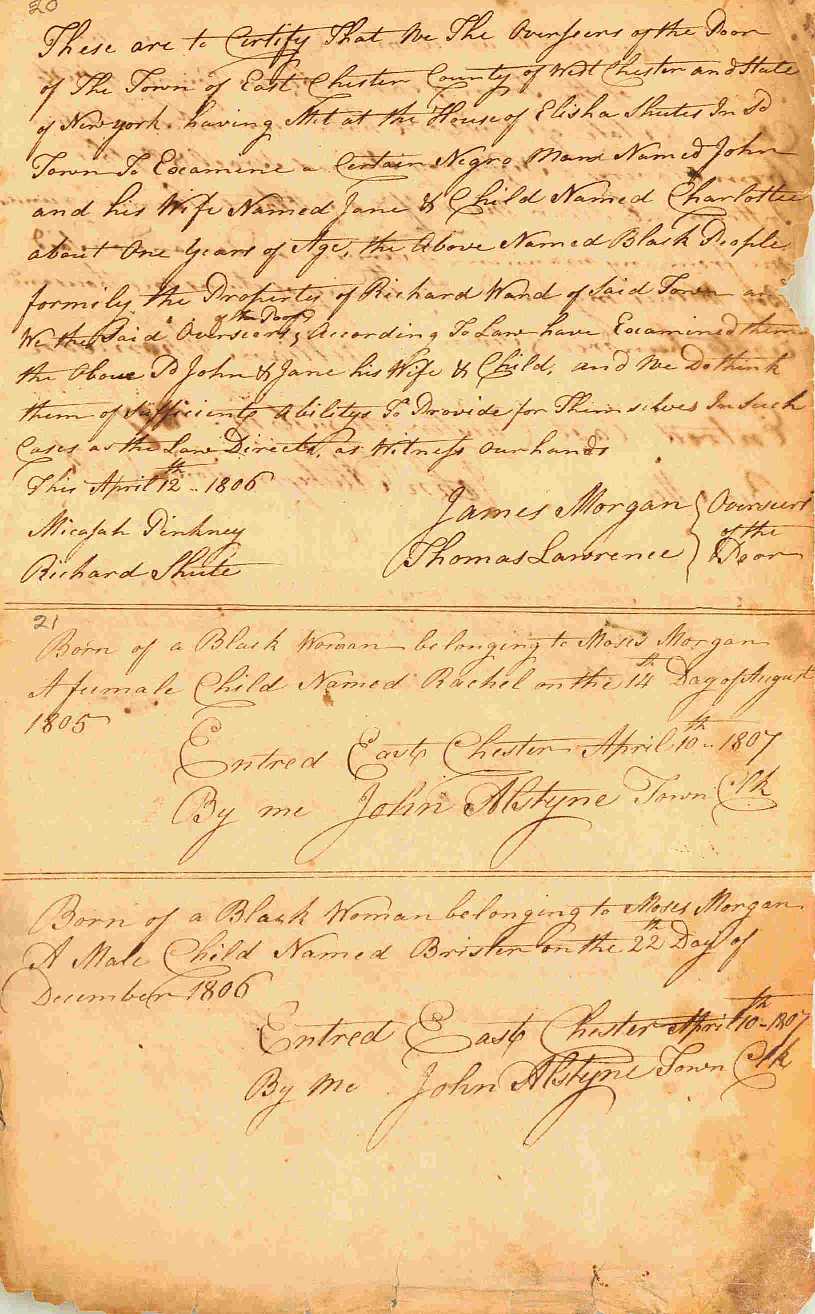 20
These are to Certify That We The Overseers of the Poor
of The Town of East Chester County of West Chester and State
of New york. having Met at the House of Elisha Shutes In Sd
Town To Examine a Certain Negro Man Named John
and his Wife Named Jane & Child Named Charlottee
about One Years of Age, the Above Named Black People
formily the Property of Richard Ward of Said Town
of the Poor
We the Said Overseers, According To Law have Examined them
the Above Sd John & Jane his Wife & Child, and We Do think
them of Sufficiente Abilitys To Provide for Themselves In Such
Cases as the Law Directs, as Witness Our hands
This April 12th - 1806
James Morgan Overseers
Micajah Pinkney of the
Richard Shute Thomas Lawrence Poor
21
Born of a Black Woman belonging to Moses Morgan
A fumale Child Named Rachel on the 14th Day of August
1805
Entred East Chester April 10th - 1807
By me John Alstyne Town Clk
Born of a Black Woman belonging to Moses Morgan
A Male Child Named Brister on the 22th Day of
December 1806
Entred East Chester April 10th - 1807
By Me John Alstyne Town Clk